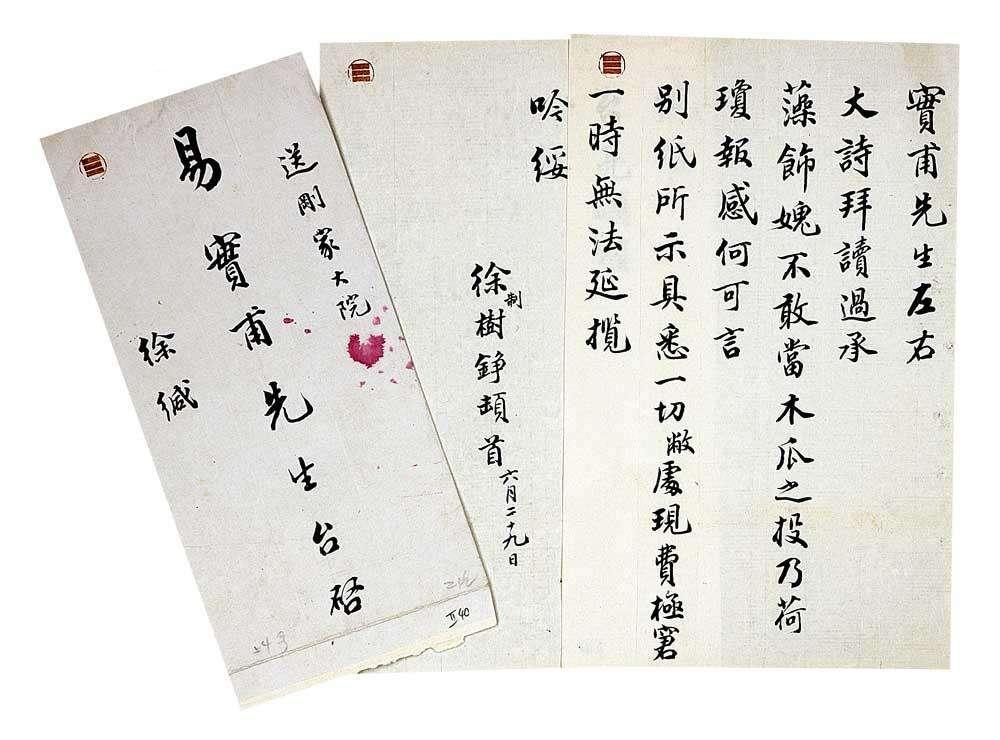 實甫先生左右
大詩拜讀過承
藻飾媿不敢當木瓜之投乃荷
瓊報感何可言
別紙所示具悉一切敝處現費極窘
一時無法延攬
吟綏
徐制樹錚頓首六月二十九日
送剛家大院
易實甫先生台啓
徐緘
II 40